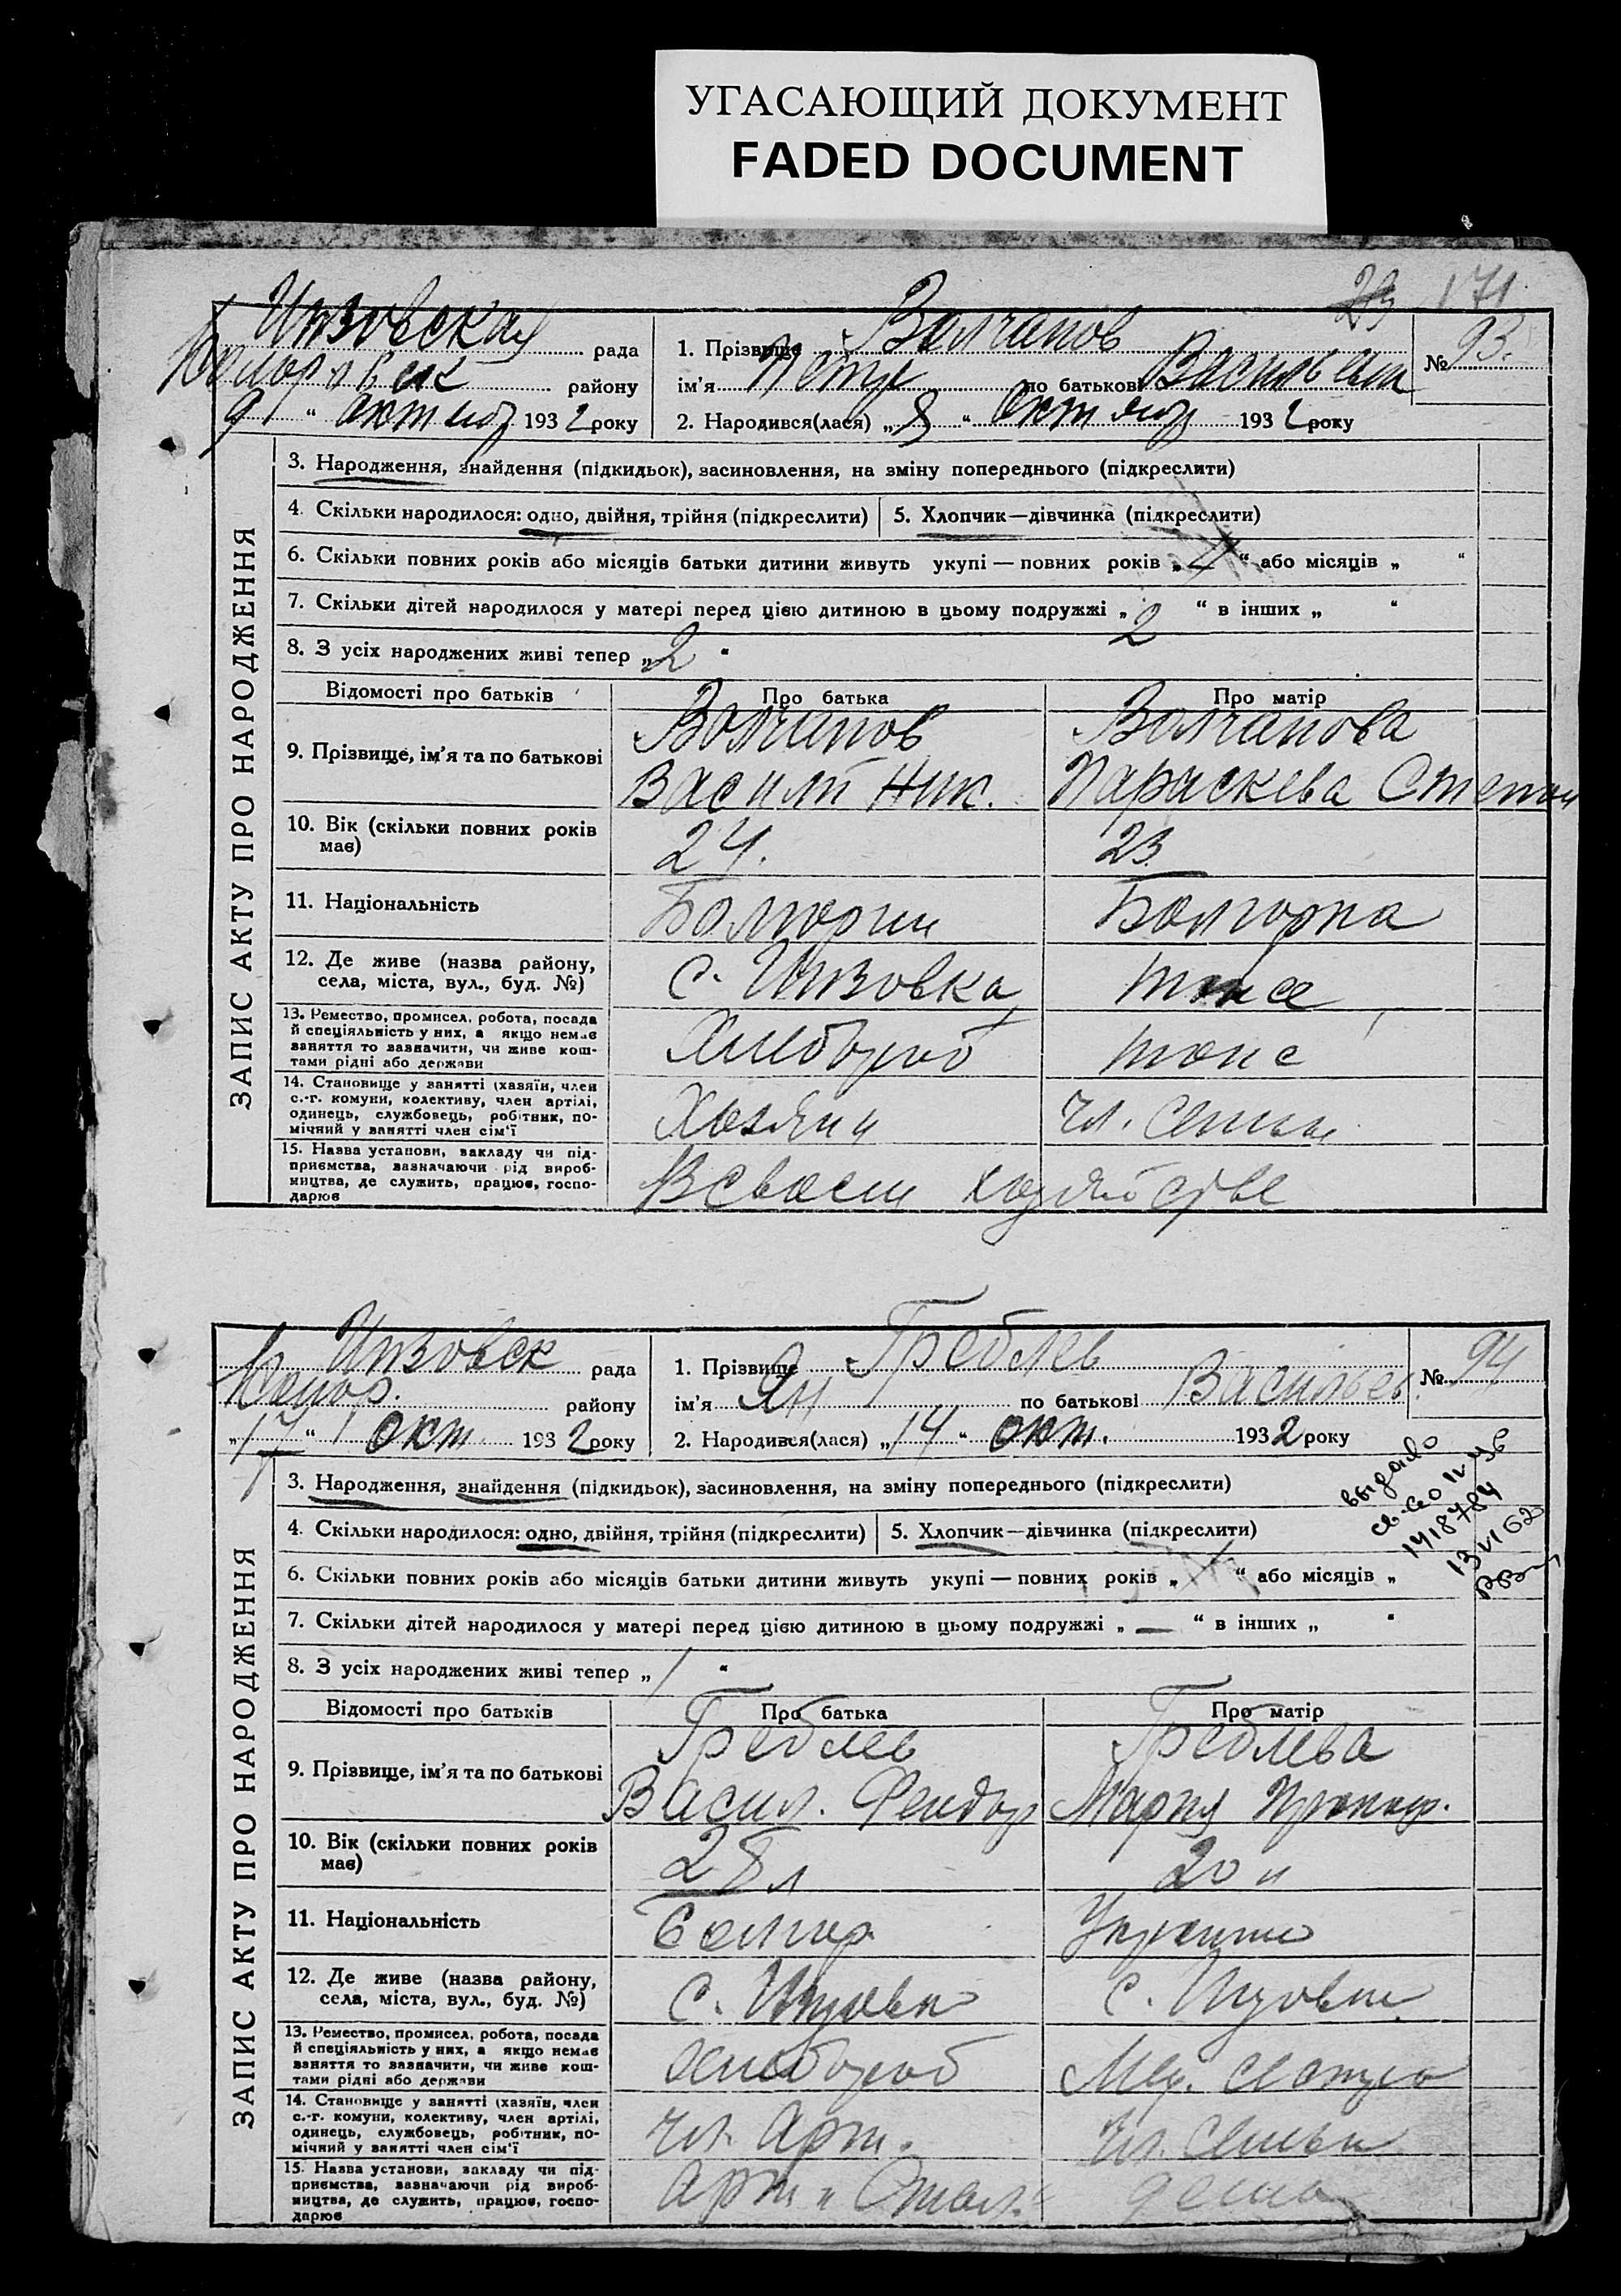 УГАСАЮЩИЙ ДОКУМЕНТ
FADED DOCUMENT
23 171
Инзовская рада
району
9 " октяб 1932 року
1. Прізвище Волчанов
ім'я Петр по батькові Васильев
2. Народився(лася) „8" октяб 1932 року
№ 93.
ЗАПИС АКТУ ПРО НАРОДЖЕННЯ
3. Народження, знайдення (підкидьок), засиновлення, на зміну попереднього (підкреслити)
4. Скільки народилося: одно, двійня, трійня (підкреслити)
5. Хлопчик—дівчинка (підкреслити)
6. Скільки повних років або місяців батьки дитини живуть укупі — повних років „4" або місяців „ "
7. Скільки дітей народилося у матері перед цією дитиною в цьому подружжі „2" в інших „ "
8. З усіх народжених живі тепер „2"
Відомості про батьків Про батька Про матір
9. Прізвище, ім'я та по батькові
Волчанов Волчанова
Василий Ник. Параскева Степан
10. Вік (скільки повних років має)
24. 23
11. Національність
Болгорин Болгорка
12. Де живе (назва району,
села, міста, вул., буд. №)
с. Инзовка тоже
13. Ремество, промисел, робота, посада
й спеціяльність у них, а якщо немає
заняття то зазначити, чи живе кош-
тами рідні або держави
Хлебороб тоже
14. Становище у занятті (хазяїн, член
с.-г. комуни, колективу, член артілі,
одинець, службовець, робітник, по-
мічний у занятті член сім'ї
Хозяин чл. семьи
15. Назва установи, закладу чи під-
приємства, зазначаючи рід вироб-
ництва, де служить, працює, госпо-
дарює
В своем хозяйстве
Инзовск рада
району
„17" окт. 1932 року
1. Прізвище Греблев
ім'я Ян по батькові Васильев.
2. Народився(лася) „14" окт. 1932 року
№ 94
выдано
св-во
1418784
13 VI 62
ЗАПИС АКТУ ПРО НАРОДЖЕННЯ
3. Народження, знайдення (підкидьок), засиновлення, на зміну попереднього (підкреслити)
4. Скільки народилося: одно, двійня, трійня (підкреслити)
5. Хлопчик—дівчинка (підкреслити)
6. Скільки повних років або місяців батьки дитини живуть укупі — повних років „1" або місяців „
7. Скільки дітей народилося у матері перед цією дитиною в цьому подружжі „—" в інших „ "
8. З усіх народжених живі тепер „1"
Відомості про батьків Про батька Про матір
9. Прізвище, ім'я та по батькові
Греблев Греблева
Васил. Феодор Мария Прокоф.
10. Вік (скільки повних років має)
28 л 20 л
11. Національність
Болгар
12. Де живе (назва району,
села, міста, вул., буд. №)
с. Инзовка с. Инзовка
13. Ремество, промисел, робота, посада
й спеціяльність у них, а якщо немає
заняття то зазначити, чи живе кош-
тами рідні або держави
хлебороб Мед. сестра
14. Становище у занятті (хазяїн, член
с.-г. комуни, колективу, член артілі,
одинець, службовець, робітник, по-
мічний у занятті член сім'ї
чл. Арт. чл. семьи
15. Назва установи, закладу чи під-
приємства, зазначаючи рід вироб-
ництва, де служить, працює, госпо-
дарює
Арт „Стал." дома